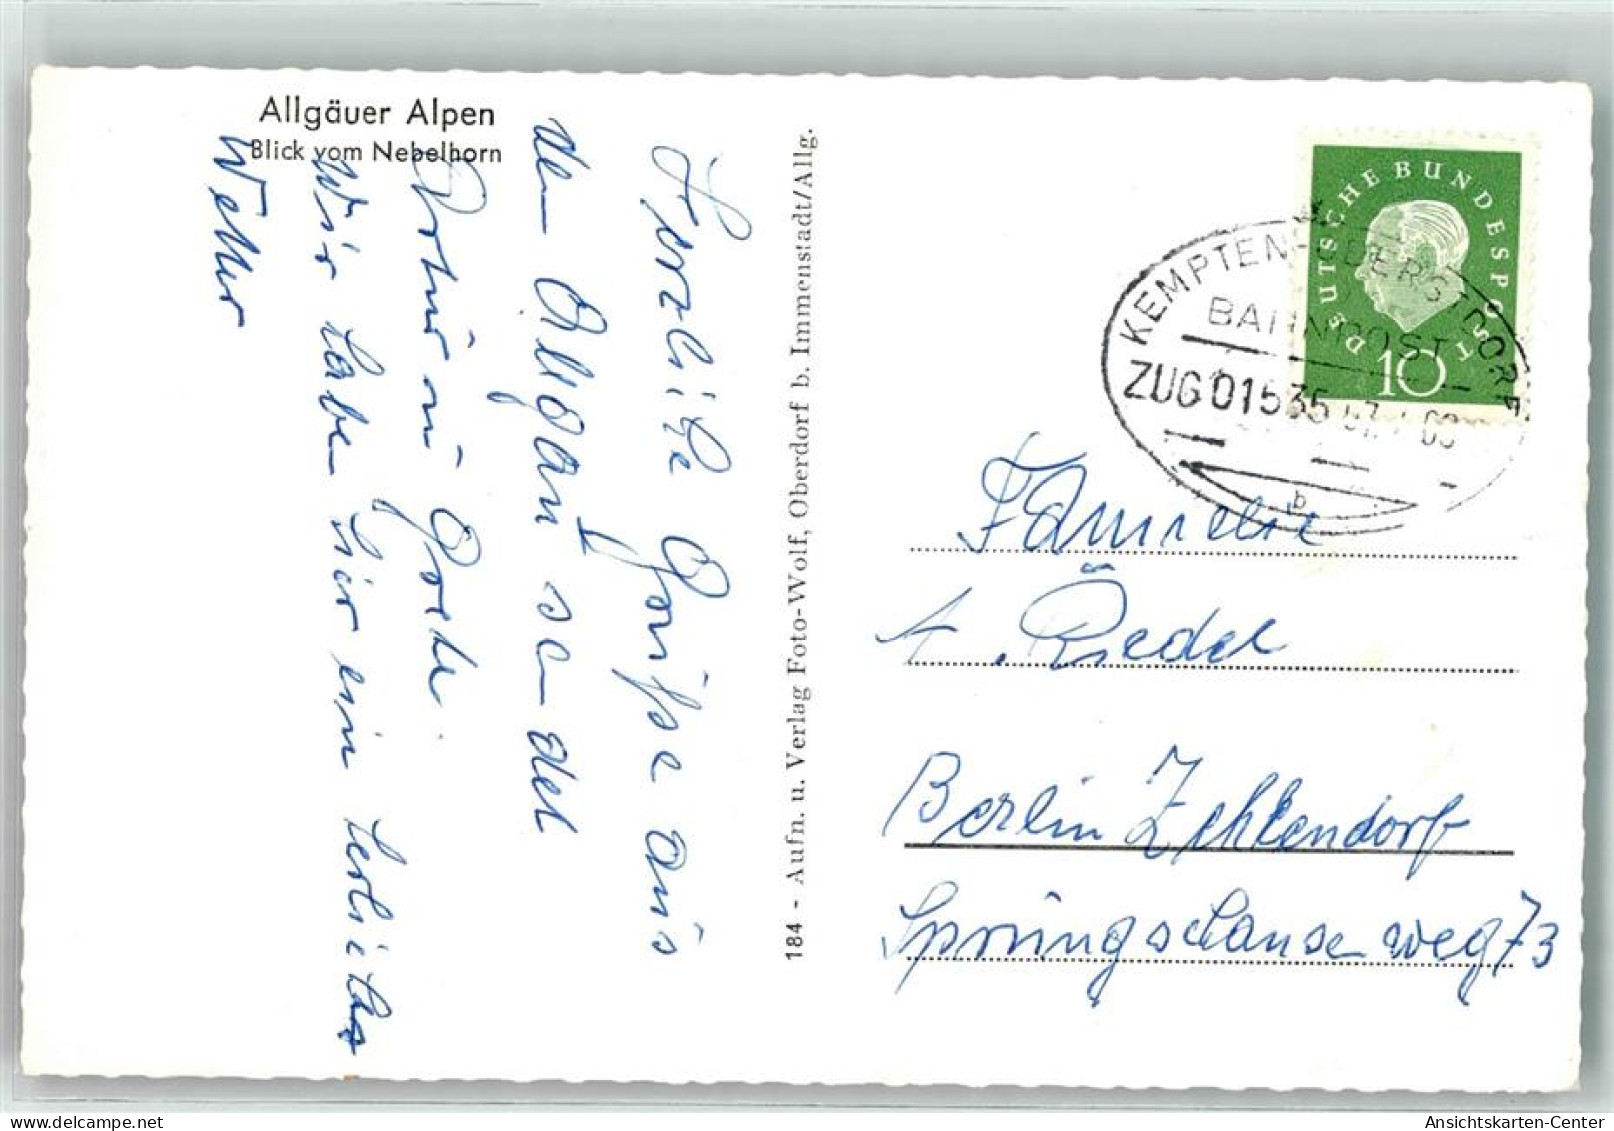 Allgäuer Alpen
Blick vom Nebelhorn
Herzliche Grüsse aus
dem Allgäu senden
Artur u. Grete.
Wir haben hir ein herliches
Wetter
184 - Aufn. u. Verlag Foto-Wolf, Oberdorf b. Immenstadt/Allg.
DEUTSCHE BUNDESPOST
10
KEMPTEN-OBERSTDORF
BAHNPOST
ZUG 01535
b
Familie
A. Riedel
Berlin Zehlendorf
Springschanseweg 73
Ansichtskarten-Center